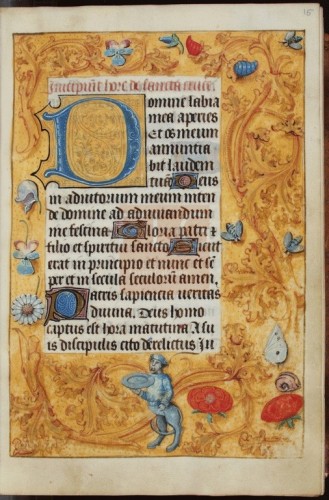 Incipiunt hore de sancta cruce.
Domine labia
mea aperies
Et os meum
annuntia
bit laudem
tuā Deus
in adiutorium meum inten
de domine ad adiuvandum
me festina Gloria patri &
filio et spiritui sancto Sicut
erat in principio et nunc et sē
per et in secula seculorum amen.
Patris sapiencia veritas
divina. Deus homo
captus est hora matutina A su
is discipulis cito derelictus Ju